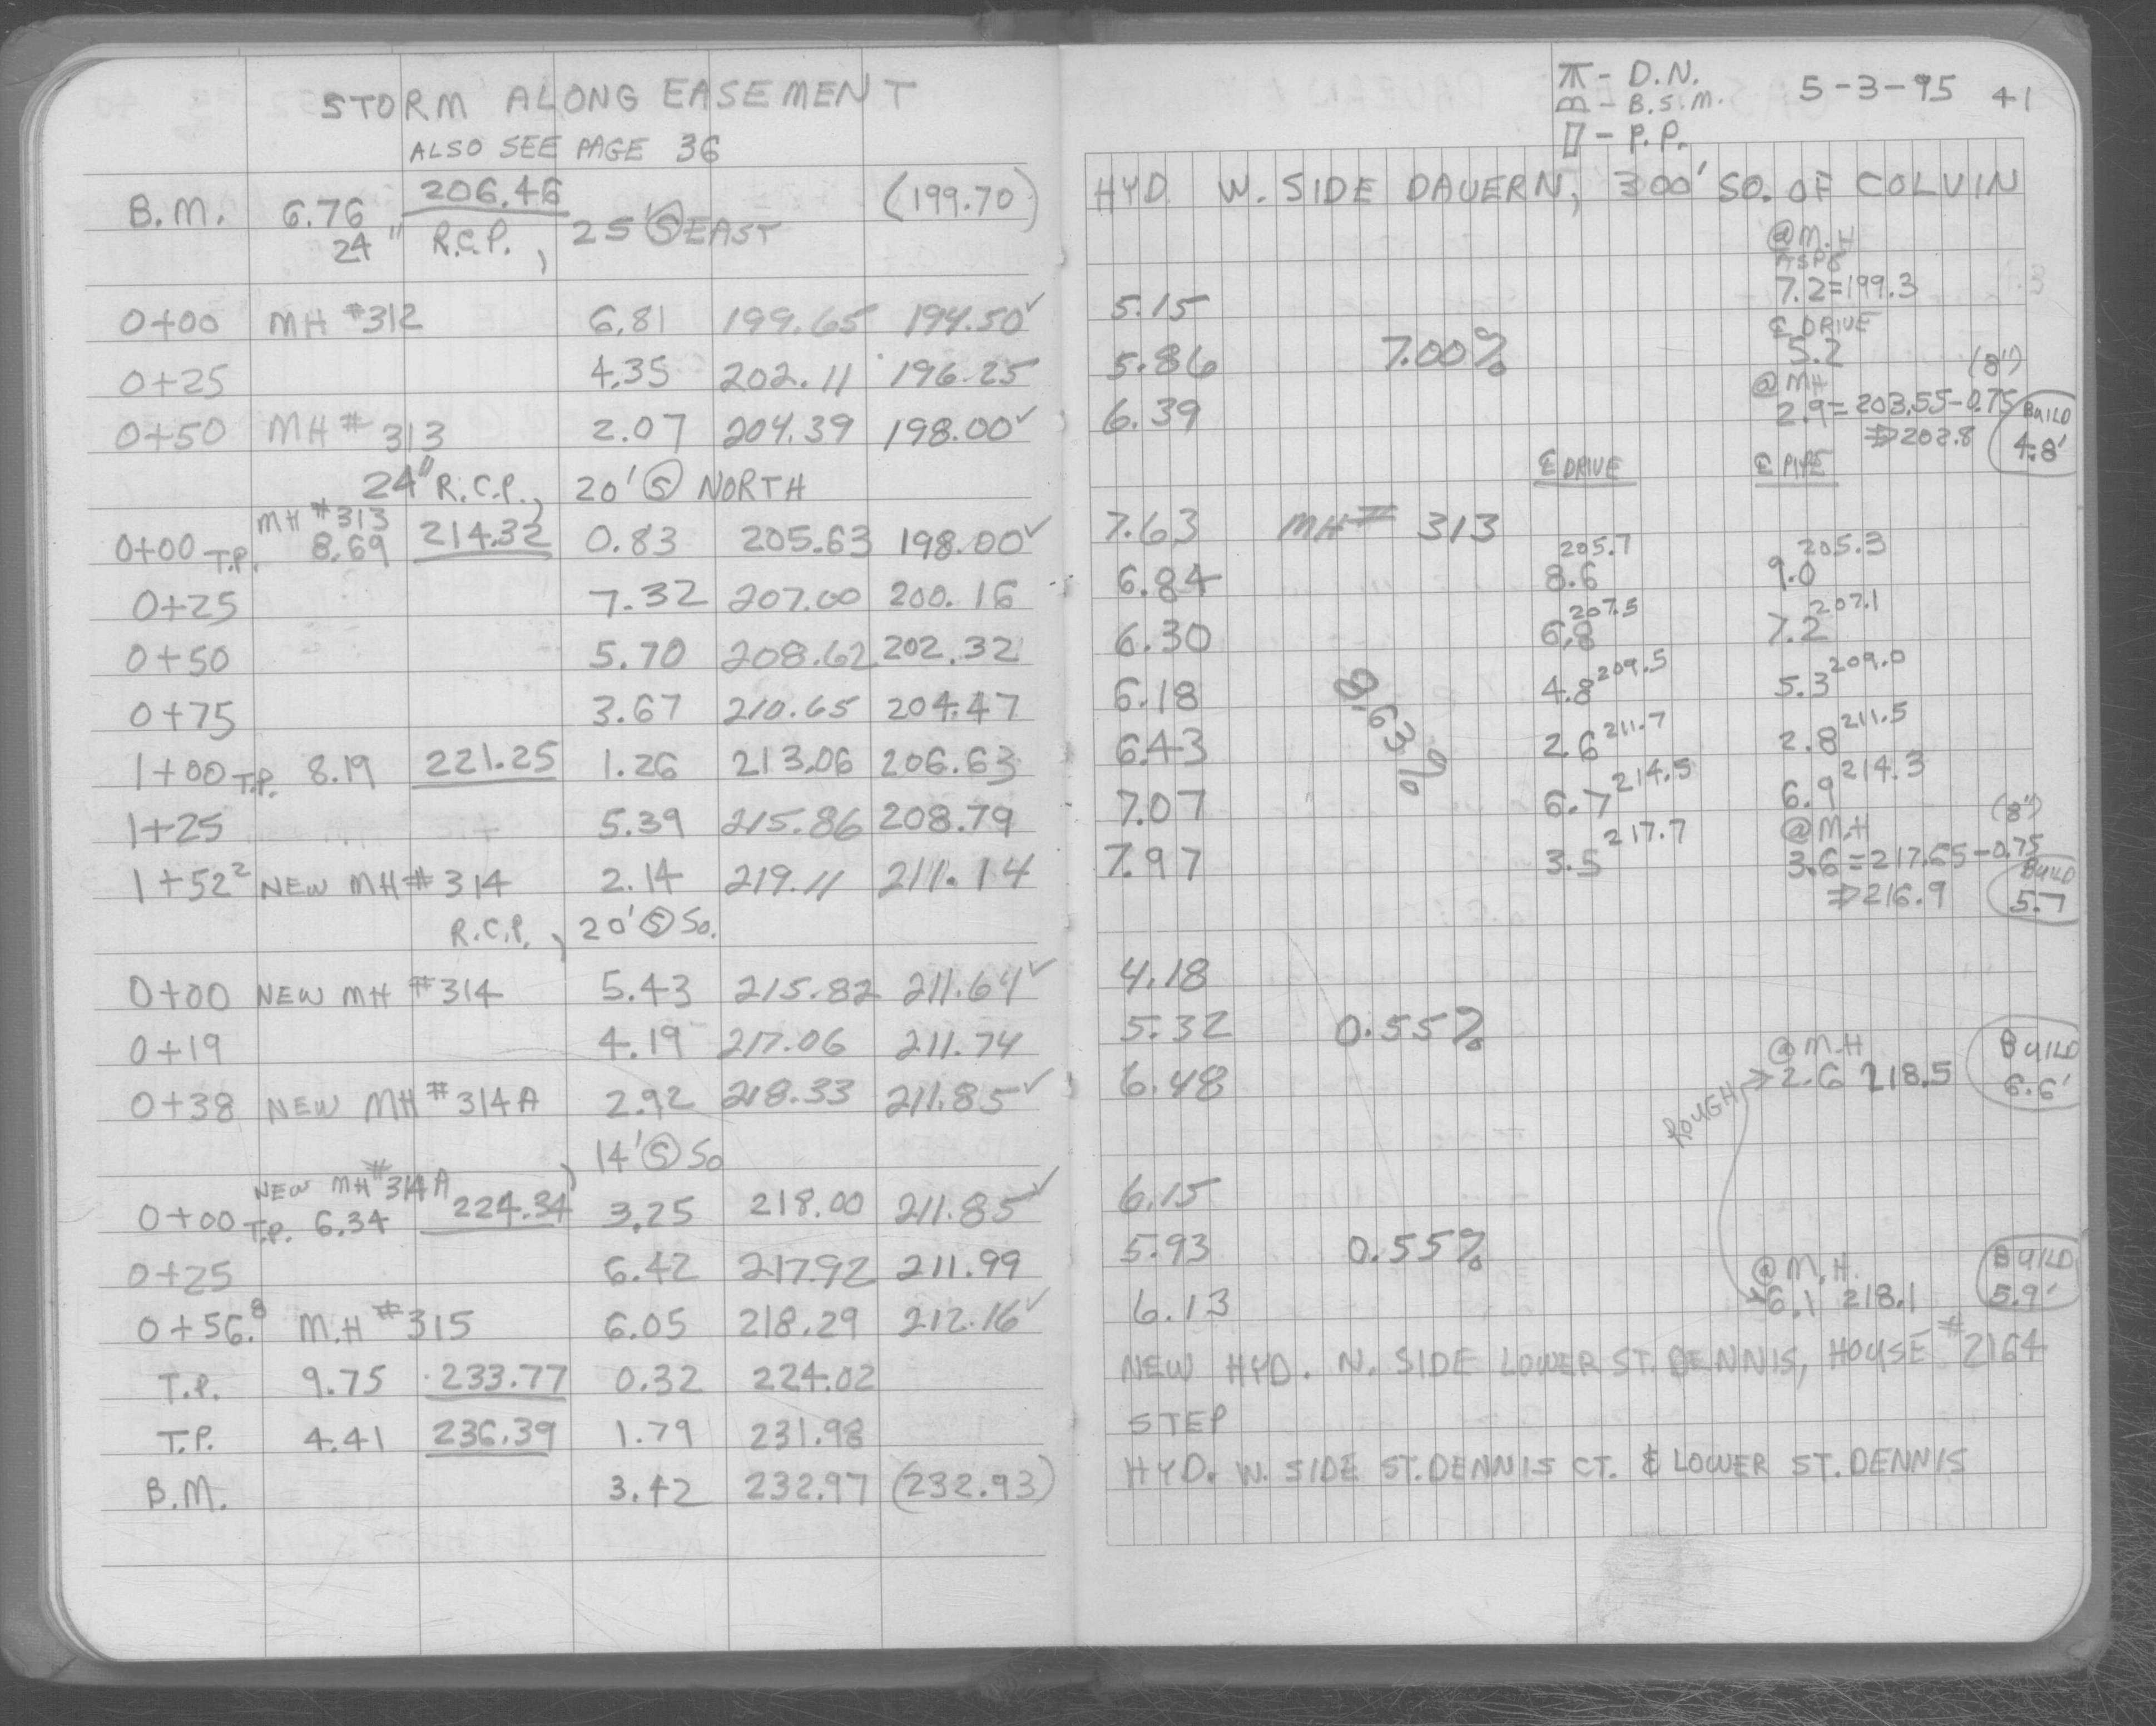 STORM ALONG EASEMENT
ALSO SEE PAGE 36
B.M. 6.76 206.46 (199.70)
24" R.C.P., 25' Ⓢ EAST
0+00 MH #312 6.81 199.65 194.50✓
0+25 4.35 202.11 196.25
0+50 MH # 313 2.07 204.39 198.00✓
24" R.C.P., 20' Ⓢ NORTH
MH #313
0+00 T.P. 8.69 214.32 0.83 205.63 198.00✓
0+25 7.32 207.00 200.16
0+50 5.70 208.62 202.32
0+75 3.67 210.65 204.47
1+00 T.P. 8.19 221.25 1.26 213.06 206.63
1+25 5.39 215.86 208.79
1+52² NEW MH# 314 2.14 219.11 211.14
R.C.P., 20' Ⓢ So.
0+00 NEW MH #314 5.43 215.82 211.64✓
0+19 4.19 217.06 211.74
0+38 NEW MH #314A 2.92 218.33 211.85✓
, 14' Ⓢ So
NEW MH #314A
0+00 T.P. 6.34 224.34 3.25 218.00 211.85✓
0+25 6.42 217.92 211.99
0+56.⁸ M.H #315 6.05 218.29 212.16✓
T.P. 9.75 233.77 0.32 224.02
T.P. 4.41 236.39 1.79 231.98
B.M. 3.42 232.97 (232.93)
- D.N.
- B.S.M.
- P.P.
5-3-95 41
HYD. W. SIDE DAUERN, 300' SO. OF COLVIN
@ M.H
7.2=199.3
5.15
℄ DRIVE
5.86 7.00% 5.2 (8")
@ MH
6.39 2.9=203.55-0.75 BUILD
⇒202.8 4.8'
℄ DRIVE ℄ PIPE
7.63 MH# 313
205.7 205.3
6.84 8.6 9.0
207.5 207.1
6.30 6.8 7.2
209.5 209.0
6.18 4.8 5.3
8.63%
211.7 211.5
6.43 2.6 2.8
214.5 214.3
7.07 6.7 6.9 (8")
217.7 @M.H
7.97 3.5 3.6=217.65-0.75 BUILD
⇒216.9 5.7
4.18
5.32 0.55%
@ M.H BUILD
6.48 ROUGH → 2.6 218.5 6.6'
6.15
5.93 0.55%
@ M.H. BUILD
6.13 6.1 218.1 5.9'
NEW HYD. N. SIDE LOWER ST. DENNIS, HOUSE #2164
STEP
HYD. W. SIDE ST. DENNIS CT. & LOWER ST. DENNIS